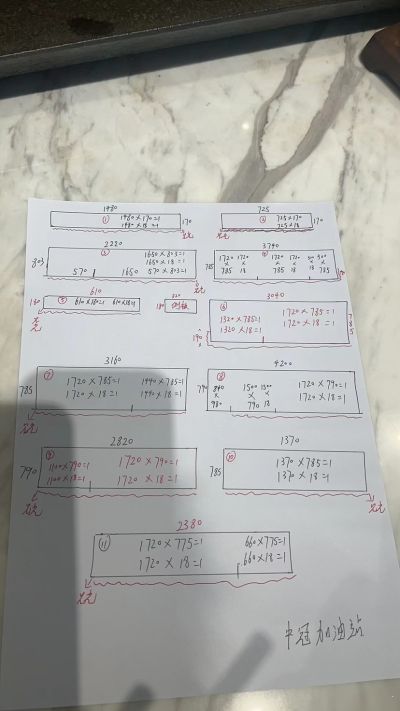 1480
① 1480×170=1 170
1480×18=1
725
② 725×170 170
725×18
2220
803 ③ 1650×803=1
1650×18=1
570 1650 570×803=1
3740
785 1720 1720 ④ 1720 1720
× × × ×
785 18 785 18 785
610
180 ⑤ 610×180=1 610×18=1
侧板
3040
⑥ 1720×785=1 785
1320×785=1 1720×18=1
1320×18=1
190
3160
785 ⑦ 1720×785=1 1440×785=1
1720×18=1 1440×18=1
4200
790 ⑧ 1500 1500 1720×790=1
× × ×
790 18 1720×18=1
2820
790 ⑨ 1100×790=1 1720×790=1
1100×18=1 1720×18=1
1370
785 ⑩ 1370×785=1
1370×18=1
2380
⑪ 1720×775=1 660×775=1
1720×18=1 660×18=1
中冠加油站